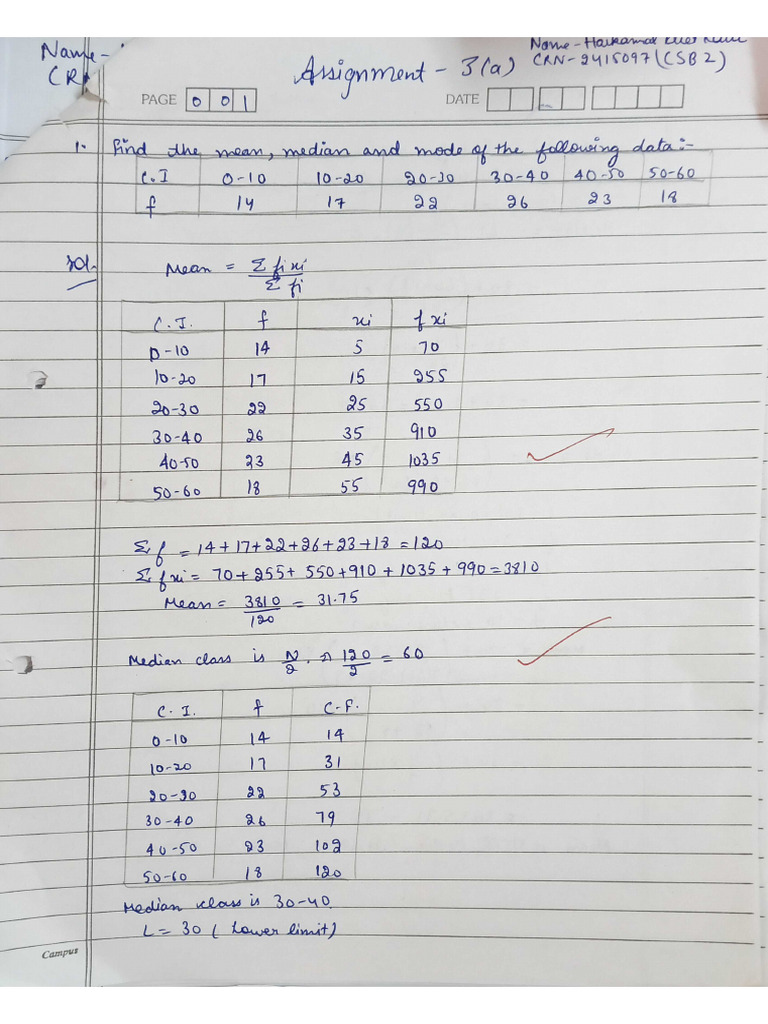 Name-
Name-
CR
Assignment - 3(a)
CRN-2415097 (CSB2)
PAGE 0 0 1
DATE
1. Find the mean, median and mode of the following data:-
C.I 0-10 10-20 20-30 30-40 40-50 50-60
f 14 17 22 26 23 18
Sol.
Mean = Σ fi xi / Σ fi
C.I. f xi f xi
0-10 14 5 70
10-20 17 15 255
20-30 22 25 550
30-40 26 35 910
40-50 23 45 1035
50-60 18 55 990
Σ f = 14+17+22+26+23+18 = 120
Σ f xi = 70+255+ 550+910 + 1035 + 990 = 3810
Mean = 3810/120 = 31.75
Median class is N/2, 120/2 = 60
C.I. f C.F.
0-10 14 14
10-20 17 31
20-30 22 53
30-40 26 79
40-50 23 102
50-60 18 120
Median class is 30-40
L= 30 ( Lower limit)
Campus